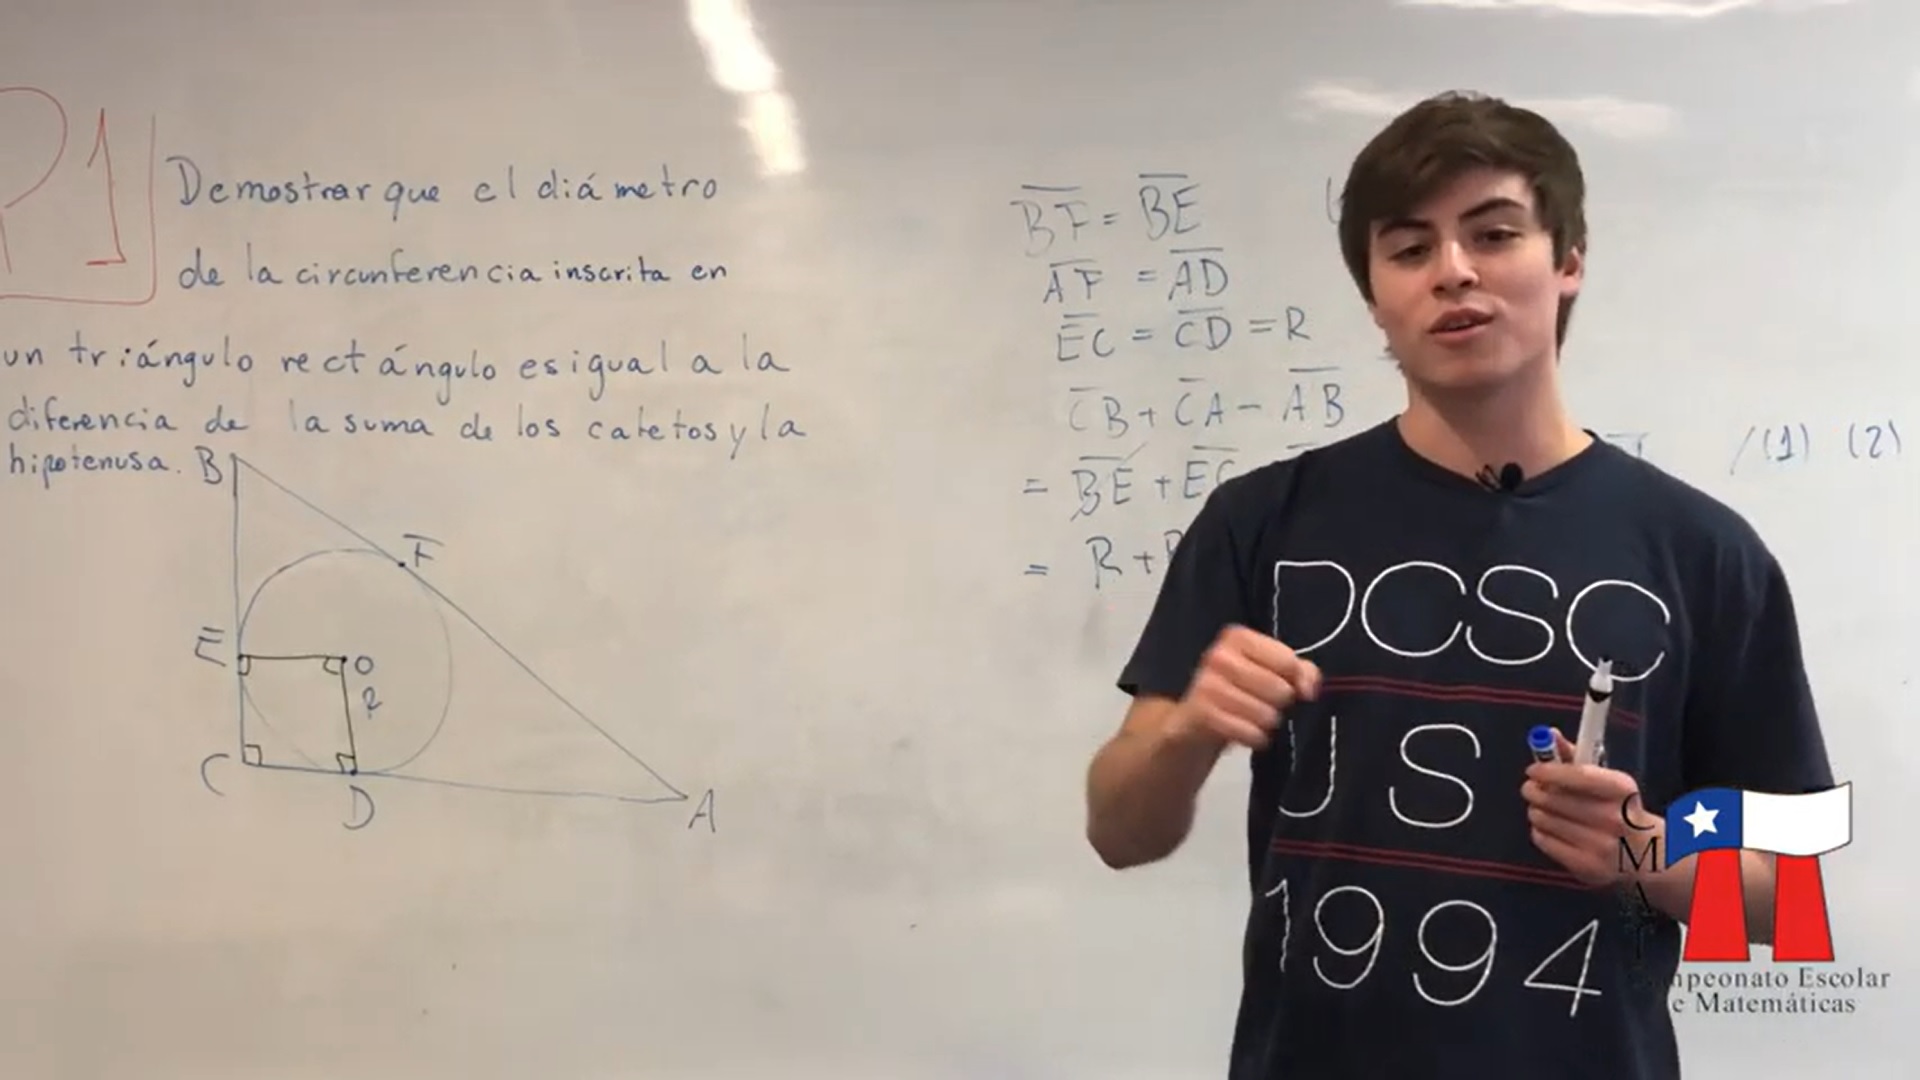 P1
Demostrar que el diámetro
de la circunferencia inscrita en
un triángulo rectángulo es igual a la
diferencia de la suma de los catetos y la
hipotenusa.
B
F
E
O
R
C
D
A
B̅F̅ = B̅E̅
A̅F̅ = A̅D̅
E̅C̅ = C̅D̅ = R
C̅B̅ + C̅A̅ - A̅B̅
= B̅E̅ + E̅C̅ /(1) (2)
= R +
DCSC
US
1994
CMAT
Campeonato Escolar
de Matemáticas